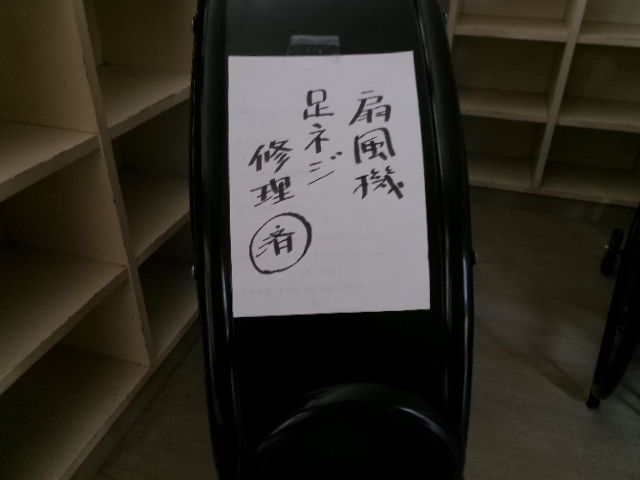 扇風機
足ネジ
修理済